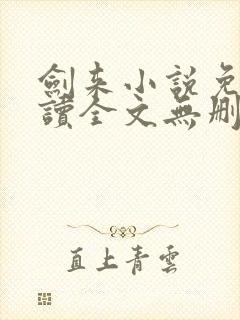 劍来小說免
讀全文無刪
直上青雲